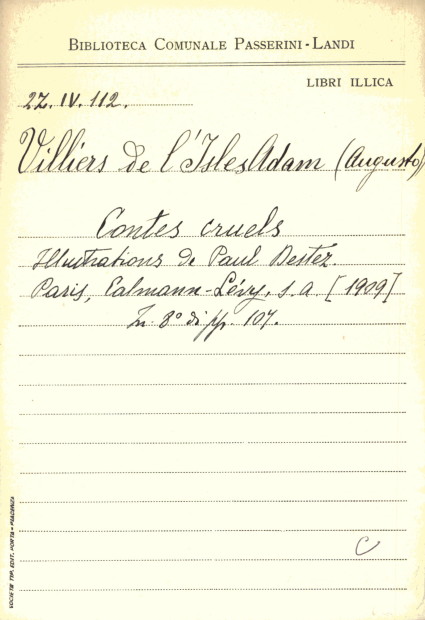 BIBLIOTECA COMUNALE PASSERINI-LANDI
LIBRI ILLICA
2Z. IV. 112.
Villiers de l'IslesAdam (Augusto)
Contes cruels
Illustrations de Paul Destéz.
Paris, Calmann-Lévy, s.a [1909]
In. 8° di pp. 107.
C
SOCIETÀ TIP. EDIT. PORTA - PIACENZA